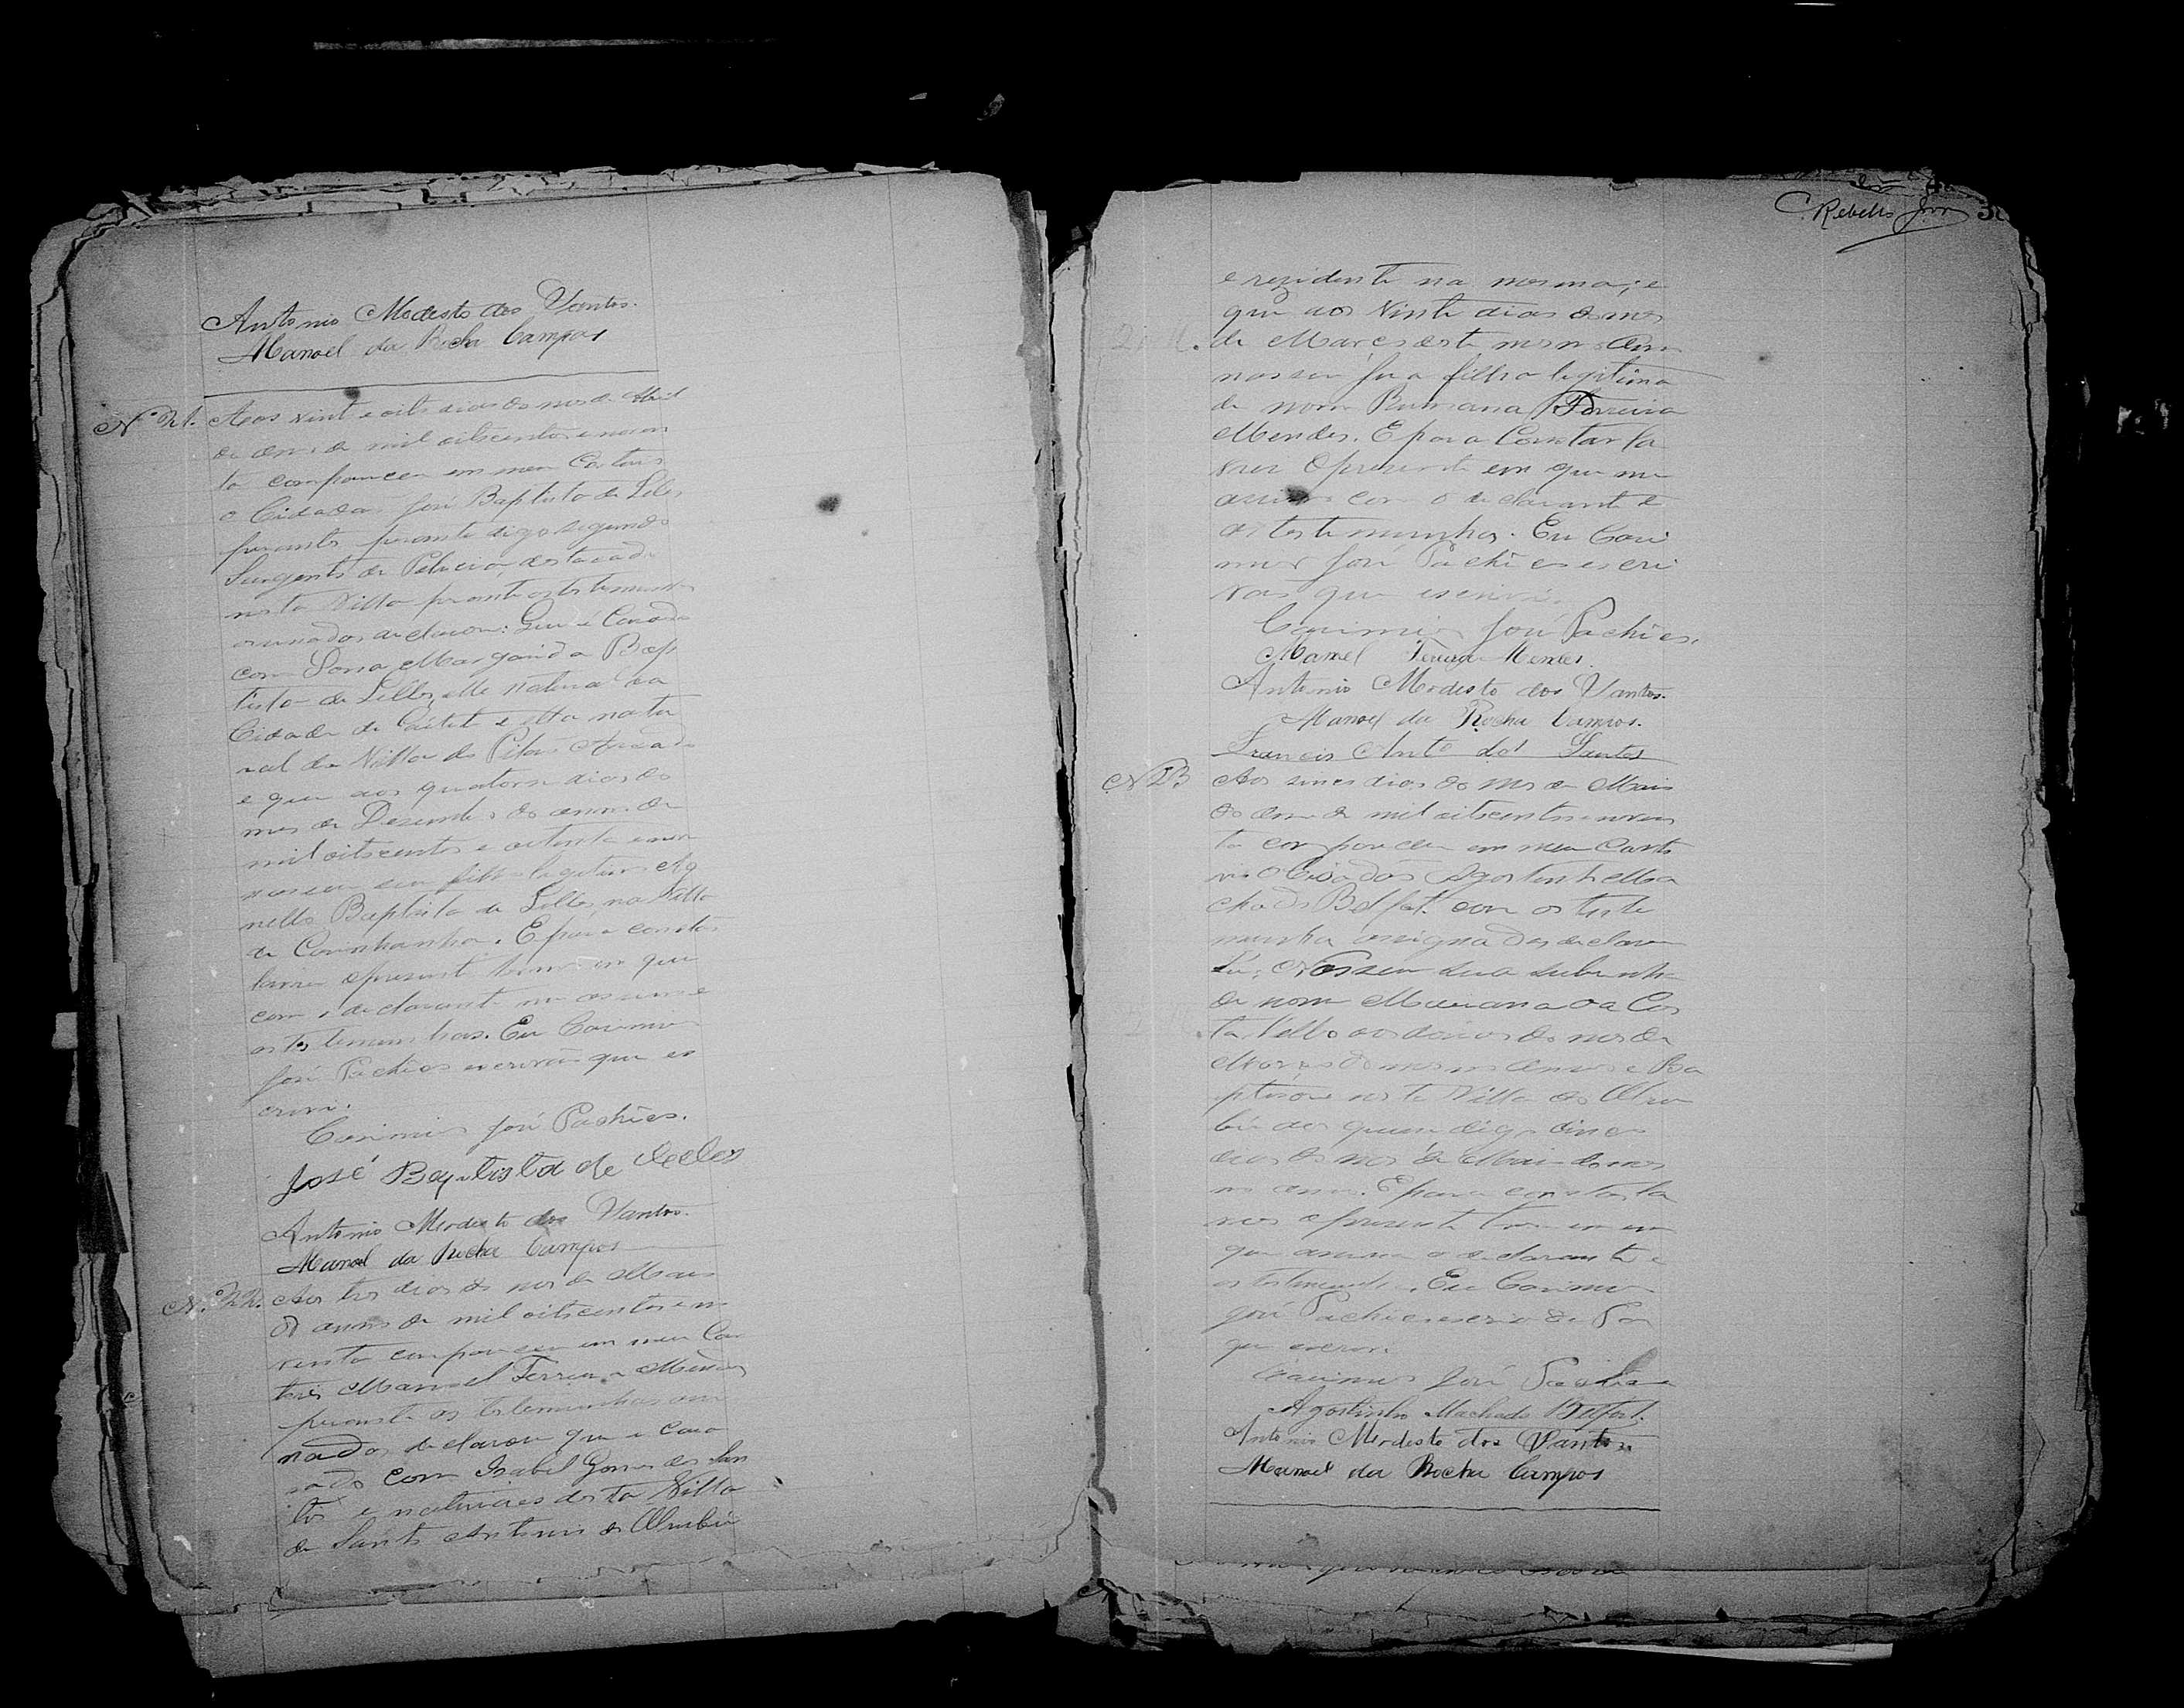 Antonio Modesto dos Santos.
Manoel da Rocha Campos
Nº 21. Aos vint e oito dias do mes de Abril
do anno de mil oitocentos e noven
ta compareceu em meu Cartorio
o Cidadão José Baptista de Lelles
perante perante digo segundo
Sargento de Policia destacado
nesta Villa perante as testemunhas
declarou: Que é Casado
com Dona Margarida Bap
tista de Lelles, elle natural da
Cidade de Caiteté e ella natu
ral da Villa do Pilão Arcado
e que aos quatorse dias do
mes de Dezembro do anno de
mil oitocentos e oitenta e nove
nasceu seu filho legitimo
Baptista de Lelles, na Villa
de Carinhanha. E para constar
lavrei o presente termo em que
com o declarante me assino e
as testemunhas. Eu Casimiro
José Pachêco escrivão que es
crevi.
Casimiro José Pachêco.
José Baptista de Leles
Antonio Modesto dos Santos.
Manoel da Rocha Campos
N. 22. Aos tres dias do mes de Maio
do anno de mil oitocentos e no
venta compareceu em meu Car
torio Manoel Ferreira Mendes
perante as testemunhas
nadas declarou que é casa
sado com Isabel Gomes dos San
tos e naturaes desta Villa
de Santo Antonio do Urubú
C. Rebello Jor
e rezidente na mesma; e
que aos vinte dias do mes
de Março deste mesmo Anno
nasceu sua filha legitima
de nome Rumana Ferreira
Mendes. E para Constar la
vrei o presente em que me
assino com o declarante e
as testemunhas. Eu Casi
miro José Pachêco escri
vão que escrevi.
Casimiro José Pachêco.
Manoel Ferreira Mendes.
Antonio Modesto dos Santos.
Manoel da Rocha Campos.
Francisco Antº dos Santos
N 23 Aos cinco dias do mes de Maio
do anno de mil oitocentos e noven
ta compareceu em meu Carto
rio o Cidadão Agostinho Ma
chado Belfort. com as teste
munhas assignadas declarou
Que; Nasceu sua sobrinha
de nome Mariana da Cos
ta Velho aos do mes de
Março do mesmo Anno e Ba
ptisou nesta Villa do Uru
bú aos quinse digo cinco
dias do mes de Maio do mes
mo anno. E para constar la
vrei o presente termo em
que assina o declarante e
as testemunhas. Eu Casimiro
José Pachêco escrivão de Paz
que escrevi.
Casimiro José Pachêco
Agostinho Machado Belfort.
Antonio Modesto dos Santos
Manoel da Rocha Campos